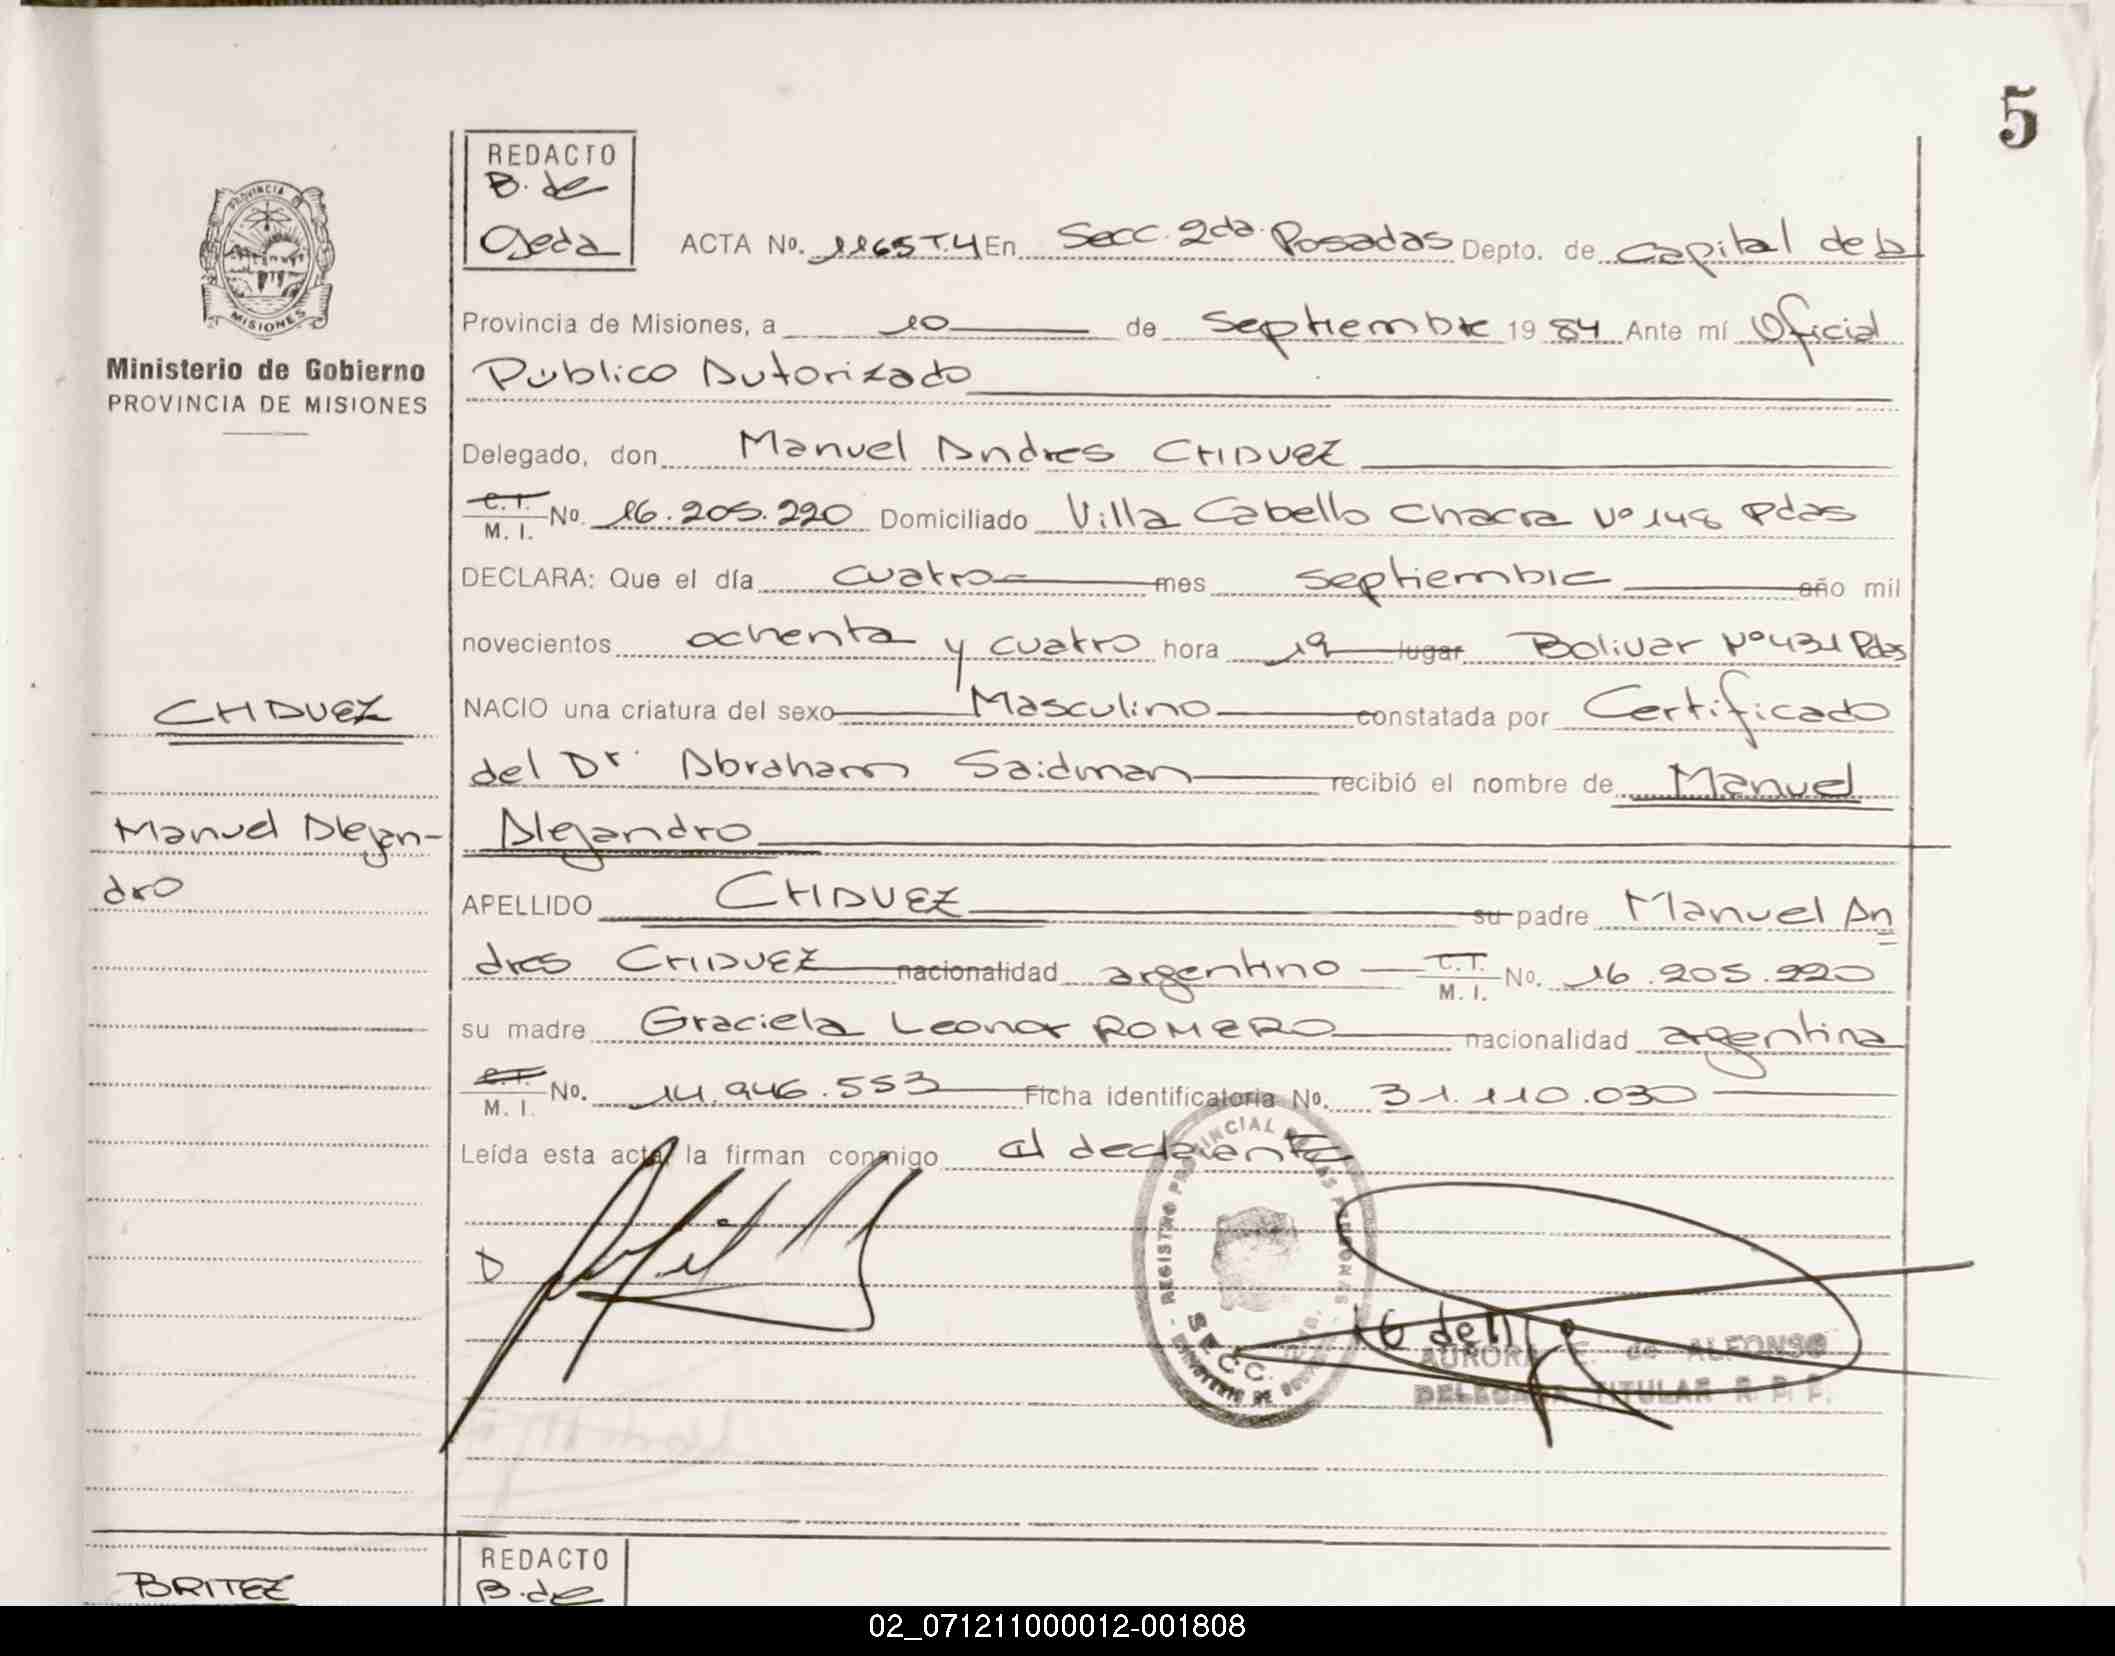 5
REDACTO
B. de
Ojeda
PROVINCIA
MISIONES
Ministerio de Gobierno
PROVINCIA DE MISIONES
ACTA No. 1165 T.4 En Secc. 2da. Posadas Depto. de Capital de la
Provincia de Misiones, a 10 de Septiembre 19 84 Ante mí Oficial
Público Autorizado
Delegado, don Manuel Andres CHAVEZ
C.I. M. I. No. 16.205.220 Domiciliado Villa Cabello Chacra Nº 148 Pdas
DECLARA: Que el día cuatro mes septiembre año mil
novecientos ochenta y cuatro hora 19 lugar Bolivar Nº 431 Pdas
NACIO una criatura del sexo Masculino constatada por Certificado
del Dr. Abraham Saidman recibió el nombre de Manuel
Alejandro
APELLIDO CHAVEZ su padre Manuel An
dres CHAVEZ nacionalidad argentino C.I. M. I. No. 16.205.220
su madre Graciela Leonor ROMERO nacionalidad argentina
C.I. M. I. No. 14.946.553 Ficha identificatoria No. 31.110.030
Leída esta acta, la firman conmigo el declarante
CHAVEZ
Manuel Alejan-
dro
REGISTRO PROVINCIAL DE LAS PERSONAS
SECC.
MINISTERIO DE
AURORA E. de ALFONSO
DELEGADA TITULAR R. P. P.
BRITEZ
REDACTO
B. de
02_071211000012-001808